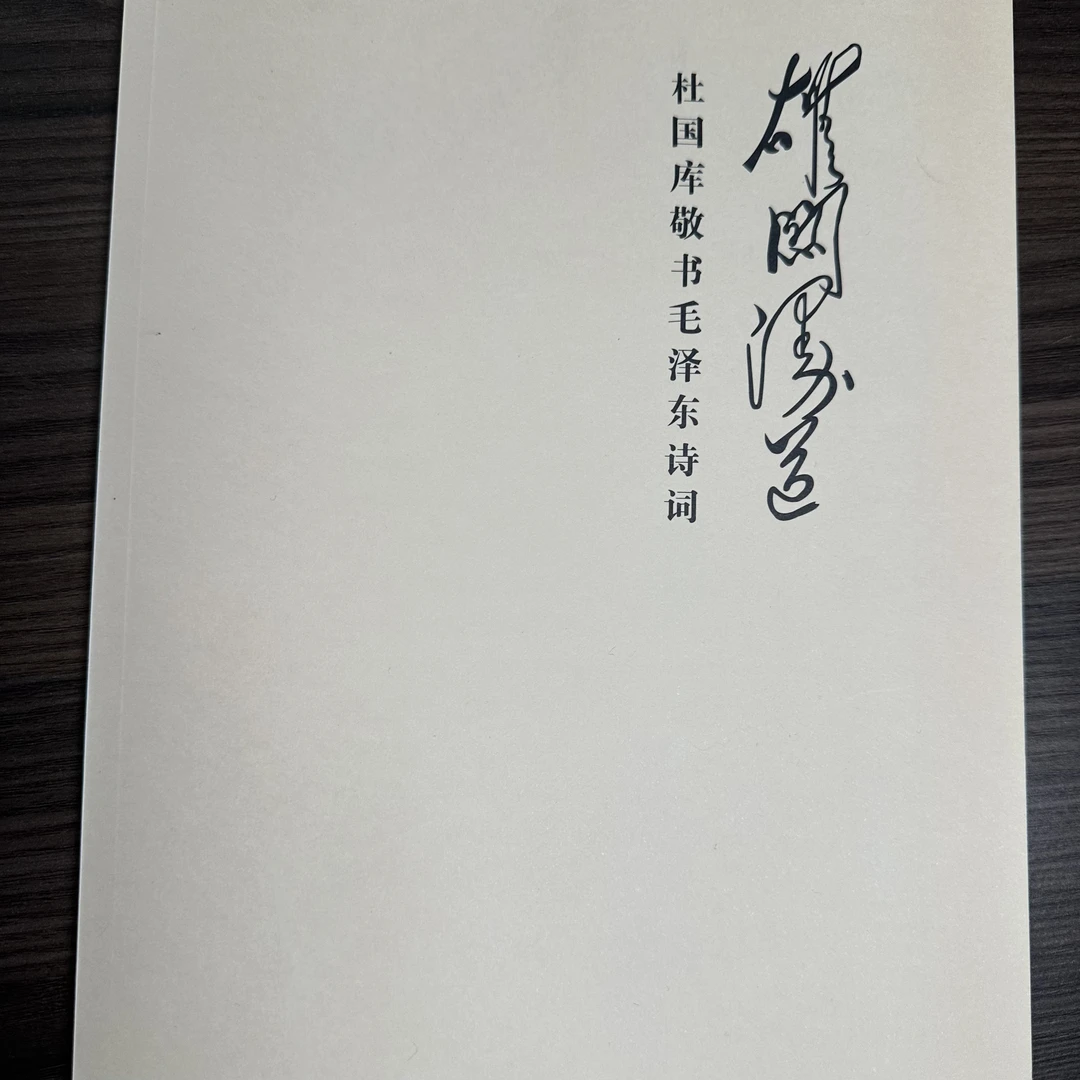 雄關漫道
杜国库敬书毛泽东诗词